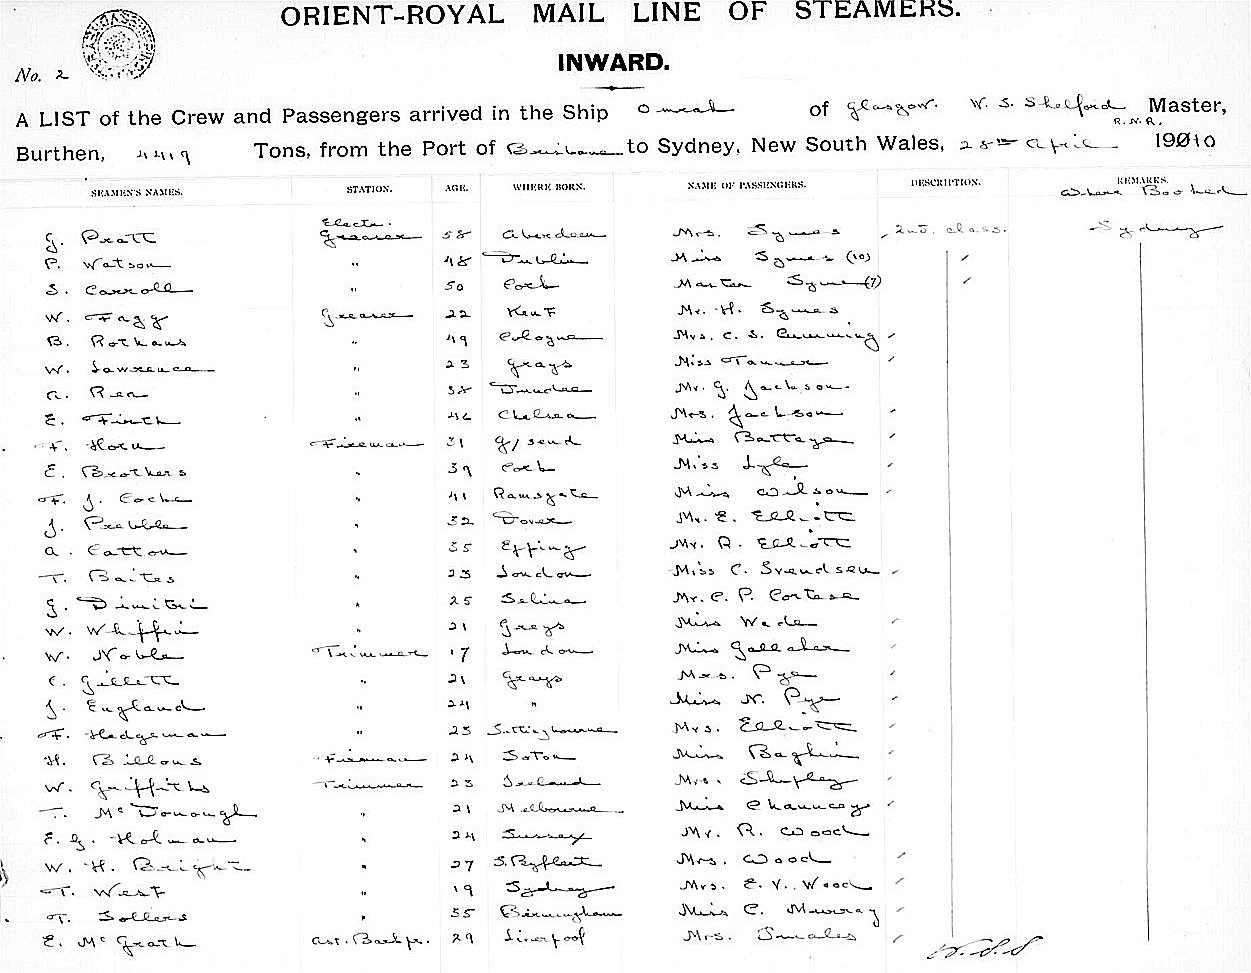 ORIENT-ROYAL MAIL LINE OF STEAMERS.
INWARD.
No. 2
A LIST of the Crew and Passengers arrived in the Ship Omrah of Glasgow. W. S. Shelford Master,
R.N.R.
Burthen, 4419 Tons, from the Port of Brisbane to Sydney, New South Wales, 28th April 191010
SEAMEN'S NAMES. STATION. AGE. WHERE BORN. NAME OF PASSENGERS. DESCRIPTION. REMARKS.
Where Booked
Electr.
J. Pratt Greaser 58 Aberdeen Mrs. Symes 2nd. class. Sydney
P. Watson " 48 Dublin Miss Symes (10)
S. Carroll " 50 Cork Master Syme (7)
W. Fagg Greaser 22 Kent Mr. H. Symes
B. Rothaus " 49 Cologne Mrs. C. S. Cumming
W. Lawrence " 23 Grays Miss Tanner
A. Rea " 38 Dundee Mr. G. Jackson.
E. Firth " 46 Chelsea Mrs. Jackson
F. Horn Fireman 31 G/send Miss Battaye
E. Brothers " 39 Cork Miss Lyle
F. J. Cocke " 41 Ramsgate Miss Wilson
J. Prebble " 32 Dover Mr. E. Elliott
A. Catton " 35 Epping Mr. A. Elliott
T. Baites " 23 London Miss C. Svendsen
G. Dimitri " 25 Selina Mr. C. P. Cortese
W. Whiffin " 21 Greys Miss Wade
W. Noble Trimmer 17 London Miss Gallaher
C. Gillett " 21 Grays Mrs. Pye
J. England " 24 " Miss N. Pye
F. Hedgeman " 23 Sittingbourne Mrs. Elliott
H. Billows Fireman 24 Soton Miss
W. Griffiths Trimmer 23 Ireland Mrs. Shipley
T. McDonough " 21 Melbourne Miss Chauncey
E. G. Holman " 24 Sussex Mr. R. Wood
W. H. Bright " 27 S. Byfleet Mrs. Wood
T. West " 19 Sydney Mrs. E. V. Wood
T. Sollers " 35 Birmingham Miss C. Murray
E. McGrath Ast. Bachpr. 29 Liverpool Mrs. Smales
W.S.S